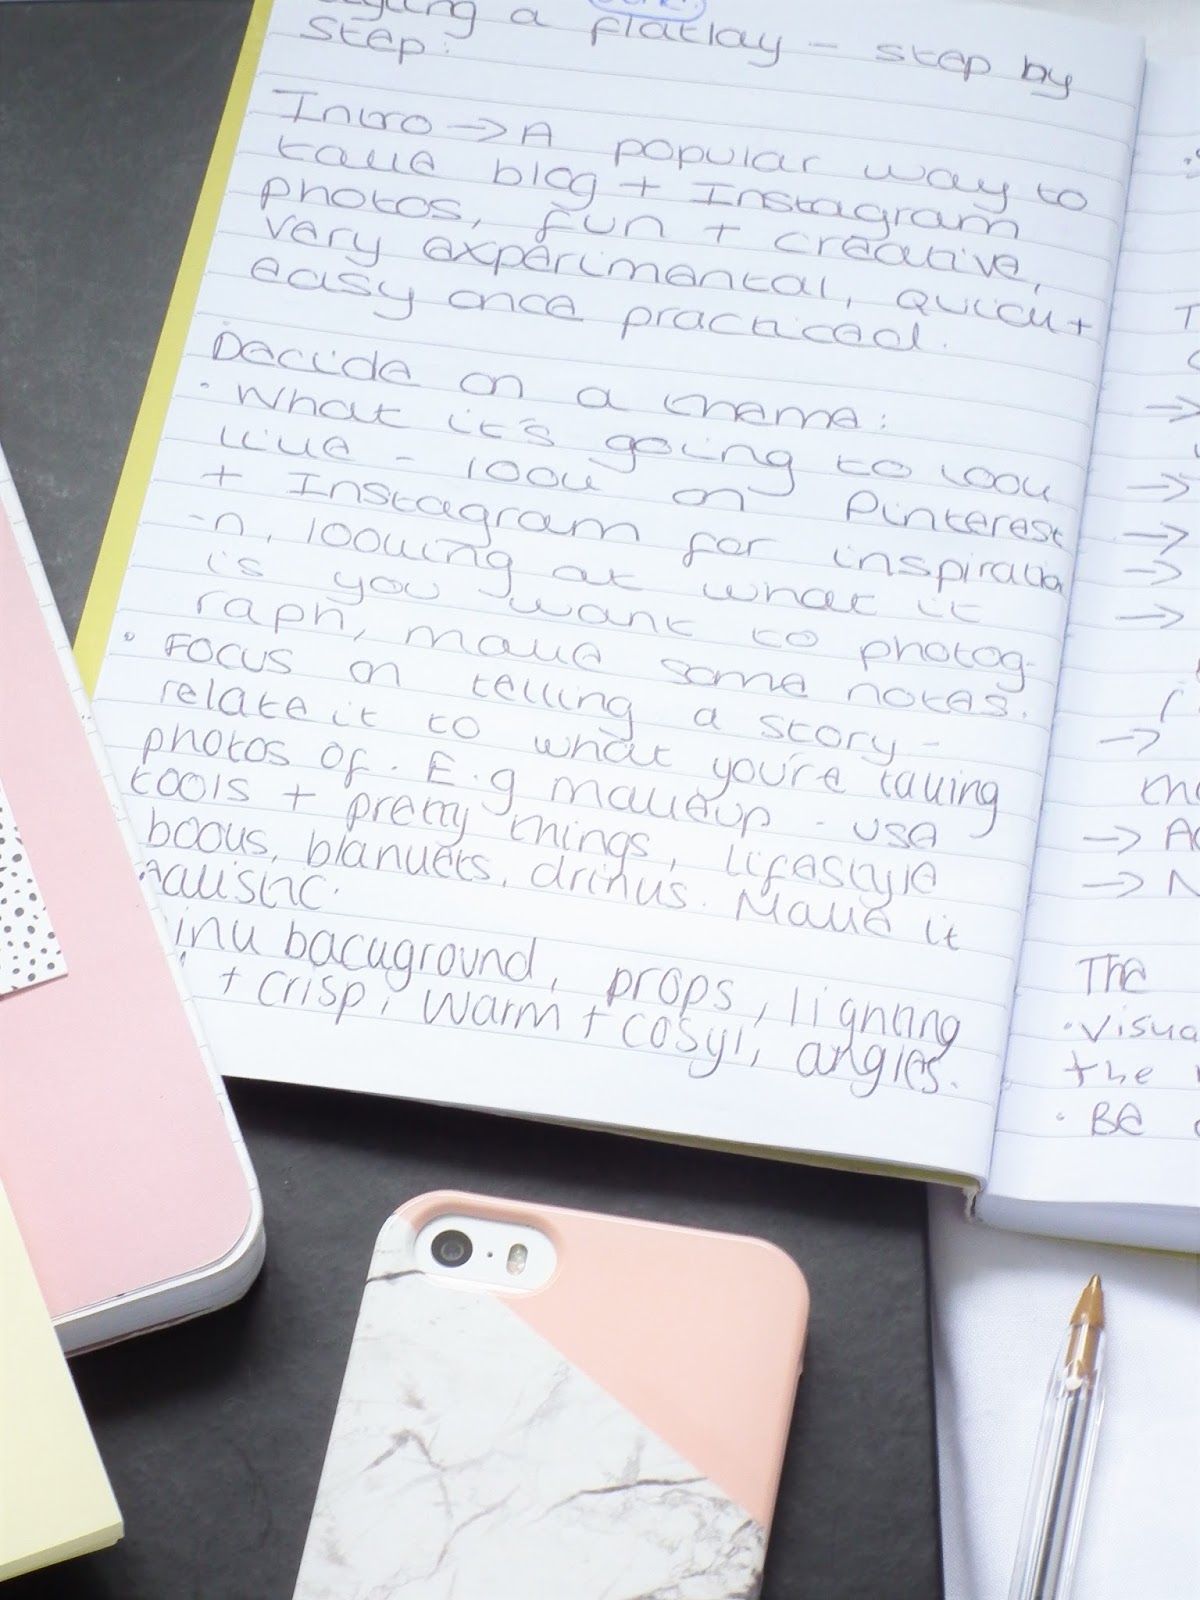 a flatlay - step by
step:
Intro → A popular way to
take blog + Instagram
photos, fun + creative,
very experimental, quick +
easy once practiced.
Decide on a theme:
• What it's going to look
like - look on Pinterest
+ Instagram for inspiratio
-n, looking at what it
is you want to photog-
raph, make some notes.
• Focus on telling a story -
relate it to what you're taking
photos of. E.g makeup - use
tools + pretty things, lifestyle
books, blankets, drinks. Make it
realistic.
background, props, lighting
+ crisp, warm + cosy), angles.
→
→
→
→
→
→
→
→
The
• Visua
the
• Be